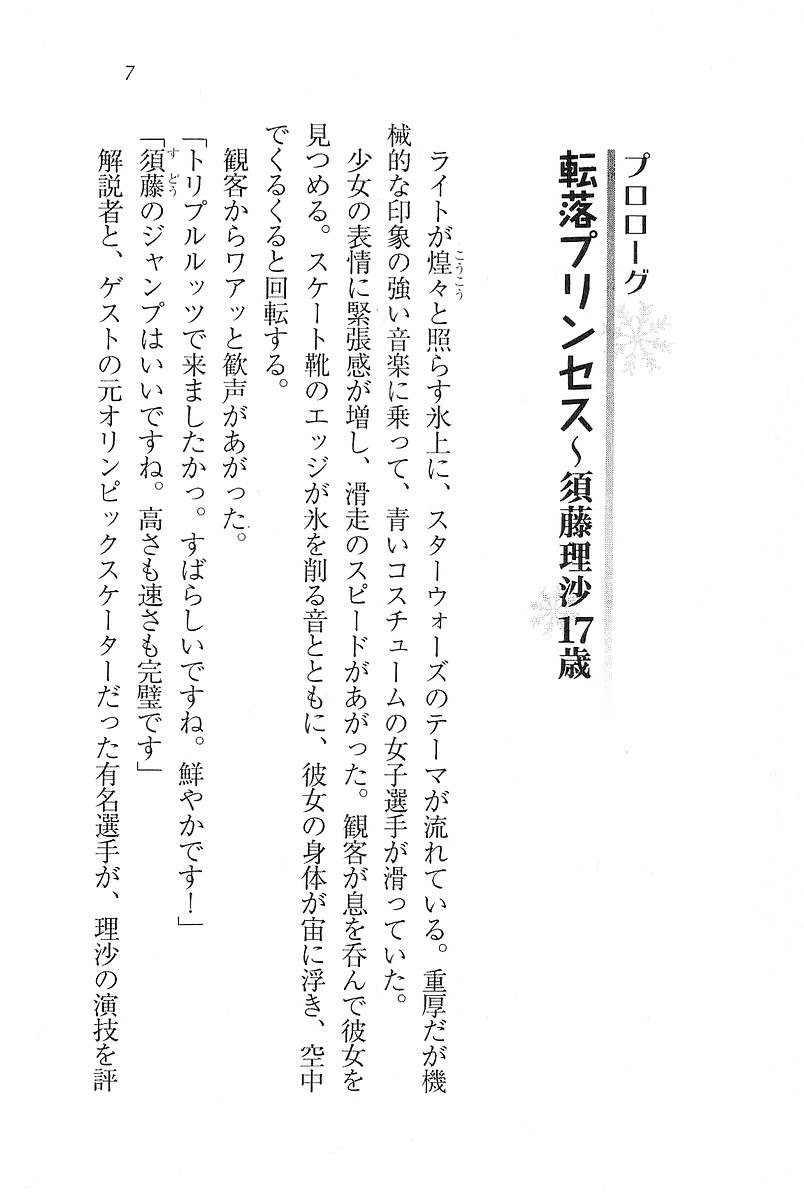 プロローグ
転落プリンセス～須藤理沙17歳
ライトが煌々と照らす氷上に、スターウォーズのテーマが流れている。重厚だが機
械的な印象の強い音楽に乗って、青いコスチュームの女子選手が滑っていた。
少女の表情に緊張感が増し、滑走のスピードがあがった。観客が息を呑んで彼女を
見つめる。スケート靴のエッジが氷を削る音とともに、彼女の身体が宙に浮き、空中
でくるくると回転する。
観客からワアッと歓声があがった。
「トリプルルッツで来ましたかっ。すばらしいですね。鮮やかです！」
「須藤のジャンプはいいですね。高さも速さも完璧です」
解説者と、ゲストの元オリンピックスケーターだった有名選手が、理沙の演技を評
7